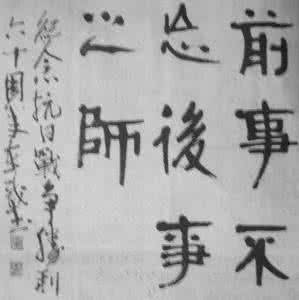 前事不
忘後事
之師
纪念抗日戰争勝利
六十周年